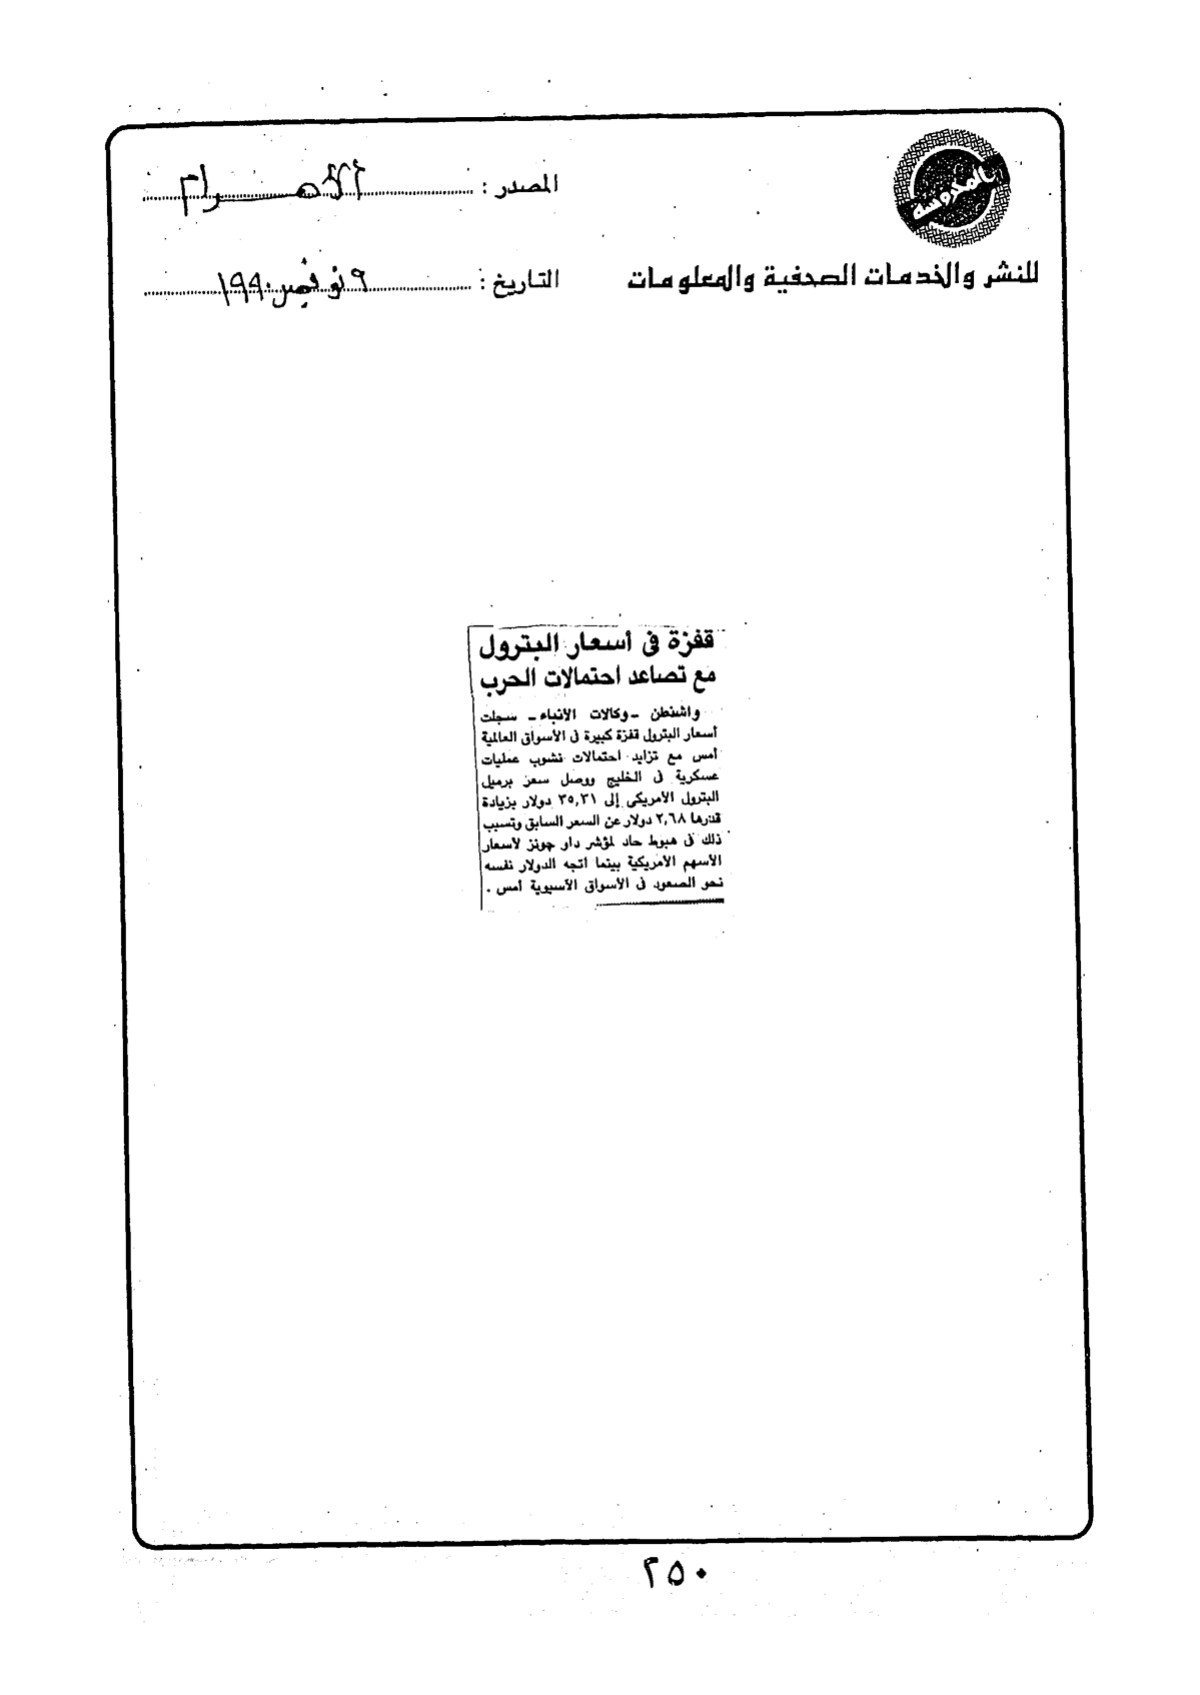 المحروسة
للنشر والخدمات الصحفية والمعلومات
المصدر : الأهرام
التاريخ : ٩ نوفمبر ١٩٩٠
قفزة فى أسعار البترول
مع تصاعد احتمالات الحرب
واشنطن - وكالات الأنباء - سجلت
أسعار البترول قفزة كبيرة فى الأسواق العالمية
أمس مع تزايد احتمالات نشوب عمليات
عسكرية فى الخليج ووصل سعر برميل
البترول الأمريكى إلى ٣٥,٣١ دولار بزيادة
قدرها ٢,٦٨ دولار عن السعر السابق وتسبب
ذلك فى هبوط حاد لمؤشر داو جونز لأسعار
الأسهم الأمريكية بينما اتجه الدولار نفسه
نحو الصعود فى الأسواق الآسيوية أمس .
٢٥٠